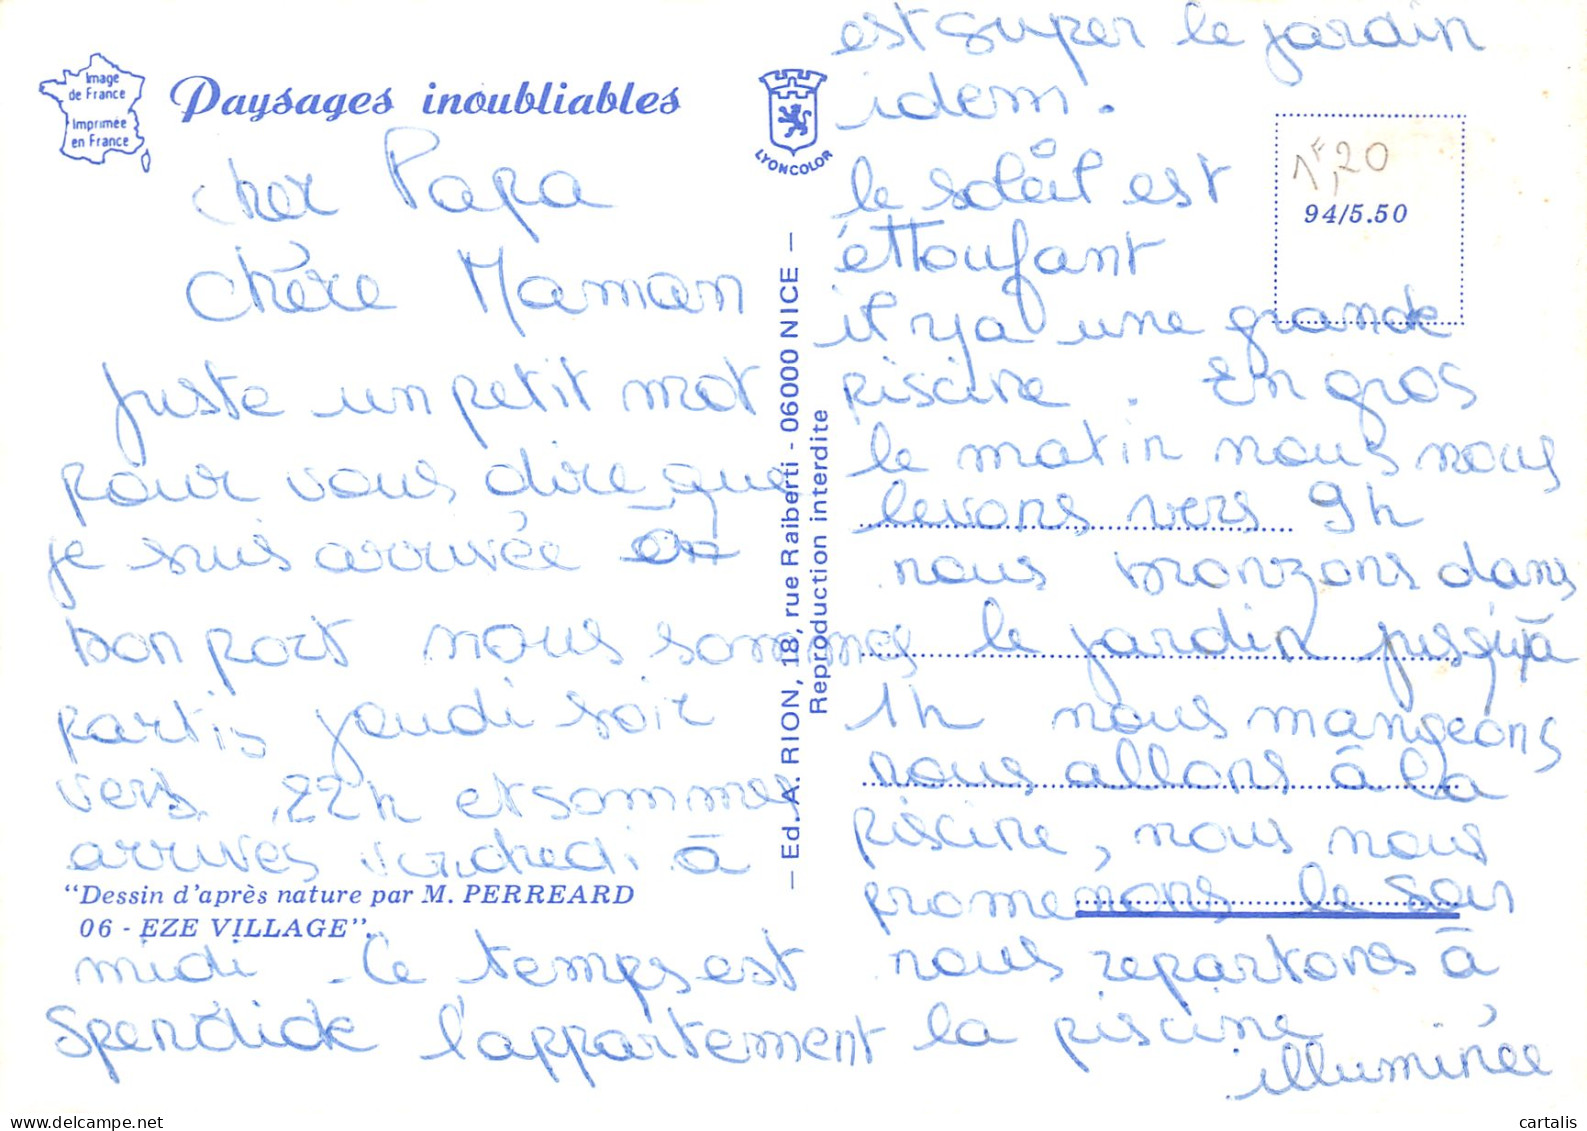 Image
de France
Imprimée
en France
Paysages inoubliables
LYONCOLOR
cher Papa
chère Maman
juste un petit mot
pour vous dire que
je suis arrivée on
bon port nous sommes
partis jeudi soir
vers 22h et sommes
arrivés vendredi à
"Dessin d'après nature par M. PERREARD
06 - EZE VILLAGE".
midi - Le temps est
Spendide l'appartement
— Ed. A. RION, 18, rue Raiberti - 06000 NICE —
Reproduction interdite
est super le jardin
idem.
le soleil est
éttoufant
il y a une grande
piscine. En gros
le matin nous nous
levons vers 9h
nous bronzons dans
le jardin jusqu'à
1h nous mangeons
nous allons à la
piscine, nous nous
promenons le soir
nous repartons à
la piscine
illuminée
1F,20
94/5.50
cartalis
www.delcampe.net